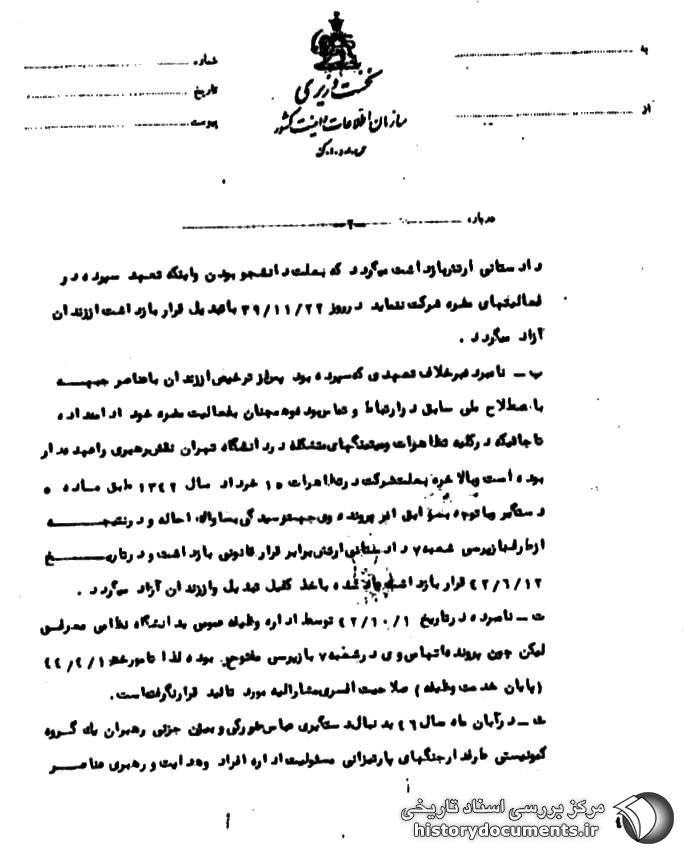 به
شماره
نخست وزیری
تاریخ
سازمان اطلاعات و امنیت کشور
از
پیوست
درباره
-۲-
دادستانی ارتش بازداشت میگردد که بعلت دانشجو بودن و اینکه تعهد سپرده در
فعالیتهای مضره شرکت ننماید در روز ۳۹/۱۱/۲۲ با تبدیل قرار بازداشت از زندان
آزاد میگردد .
پ - نامبرده برخلاف تعهدی که سپرده بود پس از ترخیص از زندان با عناصر جبهه
باصطلاح ملی سابق در ارتباط و تماس بوده و همچنان بفعالیت مضره خود ادامه داده
تا جائیکه در کلیه تظاهرات و میتینگهای متشکله در دانشگاه تهران نقش رهبری را عهده دار
بوده است و بالاخره بعلت شرکت در تظاهرات ۱۵ خرداد سال ۱۳۴۲ طبق ماده ۵
دستگیر و با توجه بسوابق امر پرونده وی جهت رسیدگی بساواک احاله و در نتیجه
از طرف بازپرسی شعبه ۷ دادستانی ارتش برابر قرار قانونی بازداشت و در تاریخ
۴۲/۶/۱۲ قرار بازداشت یاد شده باخذ کفیل تبدیل و از زندان آزاد میگردد .
ت - نامبرده در تاریخ ۴۲/۱۰/۱ توسط اداره وظیفه عمومی بدانشگاه نظامی معرفی
لیکن چون پرونده اتهامی وی در شعبه ۷ بازپرسی مفتوح بوده لذا تا مورخه ۴۴/۴/۱
(پایان خدمت وظیفه) صلاحیت افسری مشارالیه مورد تائید قرار نگرفته است.
ث - در آبان ماه سال ۴۶ بدنبال دستگیری عباس سورکی و بیژن جزنی رهبران یک گروه
کمونیستی طرفدار جنگهای پارتیزانی مسئولیت اداره افراد و هدایت و رهبری عناصر
مرکز بررسی اسناد تاریخی
historydocuments.ir